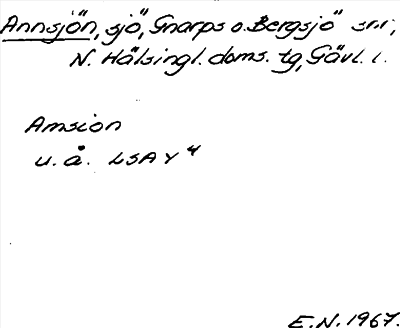 Annsjön, sjö, Gnarps o. Bergsjö snr,
N. Hälsingl. doms. tg, Gävl. l.
Amsion
u. å. LSA Y 4
E.N. 1967.